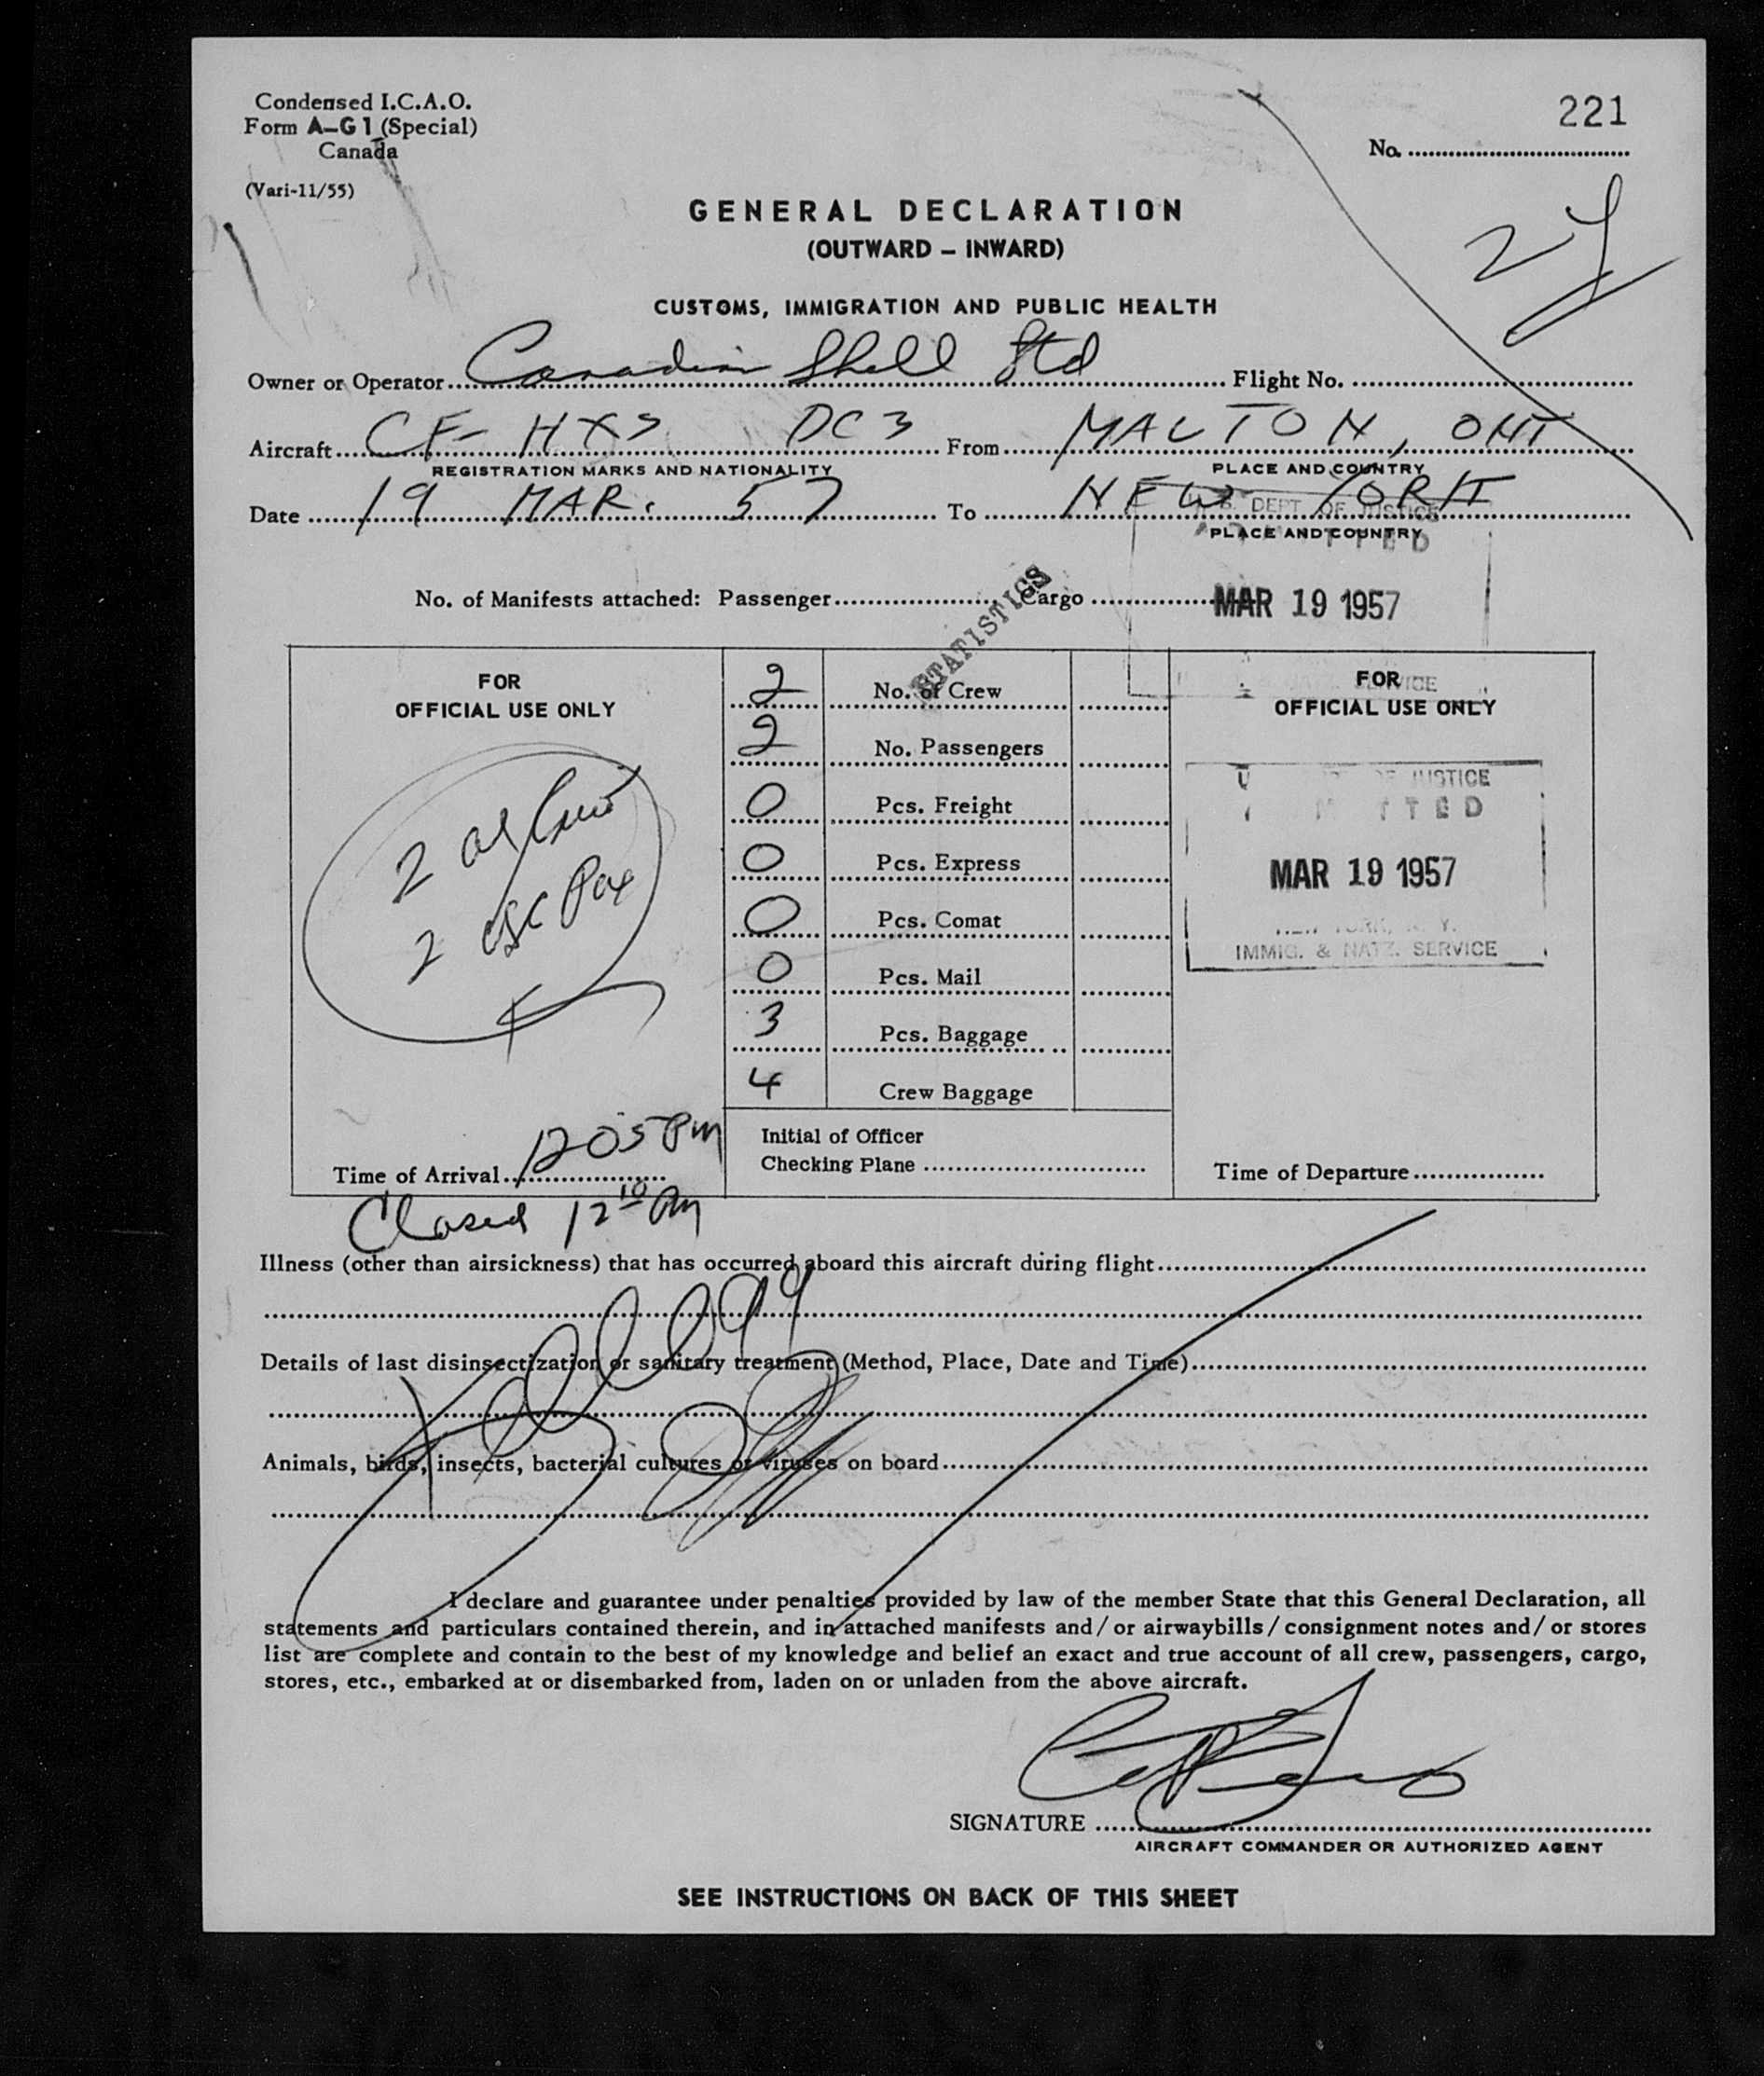 Condensed I.C.A.O.
Form A-G1 (Special)
Canada
(Vari-11/55)
221
No.
GENERAL DECLARATION
(OUTWARD – INWARD)
CUSTOMS, IMMIGRATION AND PUBLIC HEALTH
Owner or Operator Canadian Shell Ltd Flight No.
Aircraft CF-HXS DC3 From MALTON, ONT
REGISTRATION MARKS AND NATIONALITY PLACE AND COUNTRY
Date 19 MAR. 57 To NEW YORK
DEPT OF JUSTICE
PLACE AND COUNTRY
No. of Manifests attached: Passenger Cargo
STATISTICS
MAR 19 1957
FOR
OFFICIAL USE ONLY
2 No. of Crew
2 No. Passengers
0 Pcs. Freight
0 Pcs. Express
0 Pcs. Comat
0 Pcs. Mail
3 Pcs. Baggage
4 Crew Baggage
2
2
Time of Arrival 1205 PM
Closed 12 10 PM
Initial of Officer
Checking Plane
FOR
OFFICIAL USE ONLY
JUSTICE
MAR 19 1957
IMMIG. & NATZ. SERVICE
Time of Departure
Illness (other than airsickness) that has occurred aboard this aircraft during flight
Details of last disinsectization or sanitary treatment (Method, Place, Date and Time)
Animals, birds, insects, bacterial cultures or viruses on board
I declare and guarantee under penalties provided by law of the member State that this General Declaration, all
statements and particulars contained therein, and in attached manifests and/or airwaybills/consignment notes and/or stores
list are complete and contain to the best of my knowledge and belief an exact and true account of all crew, passengers, cargo,
stores, etc., embarked at or disembarked from, laden on or unladen from the above aircraft.
SIGNATURE
AIRCRAFT COMMANDER OR AUTHORIZED AGENT
SEE INSTRUCTIONS ON BACK OF THIS SHEET